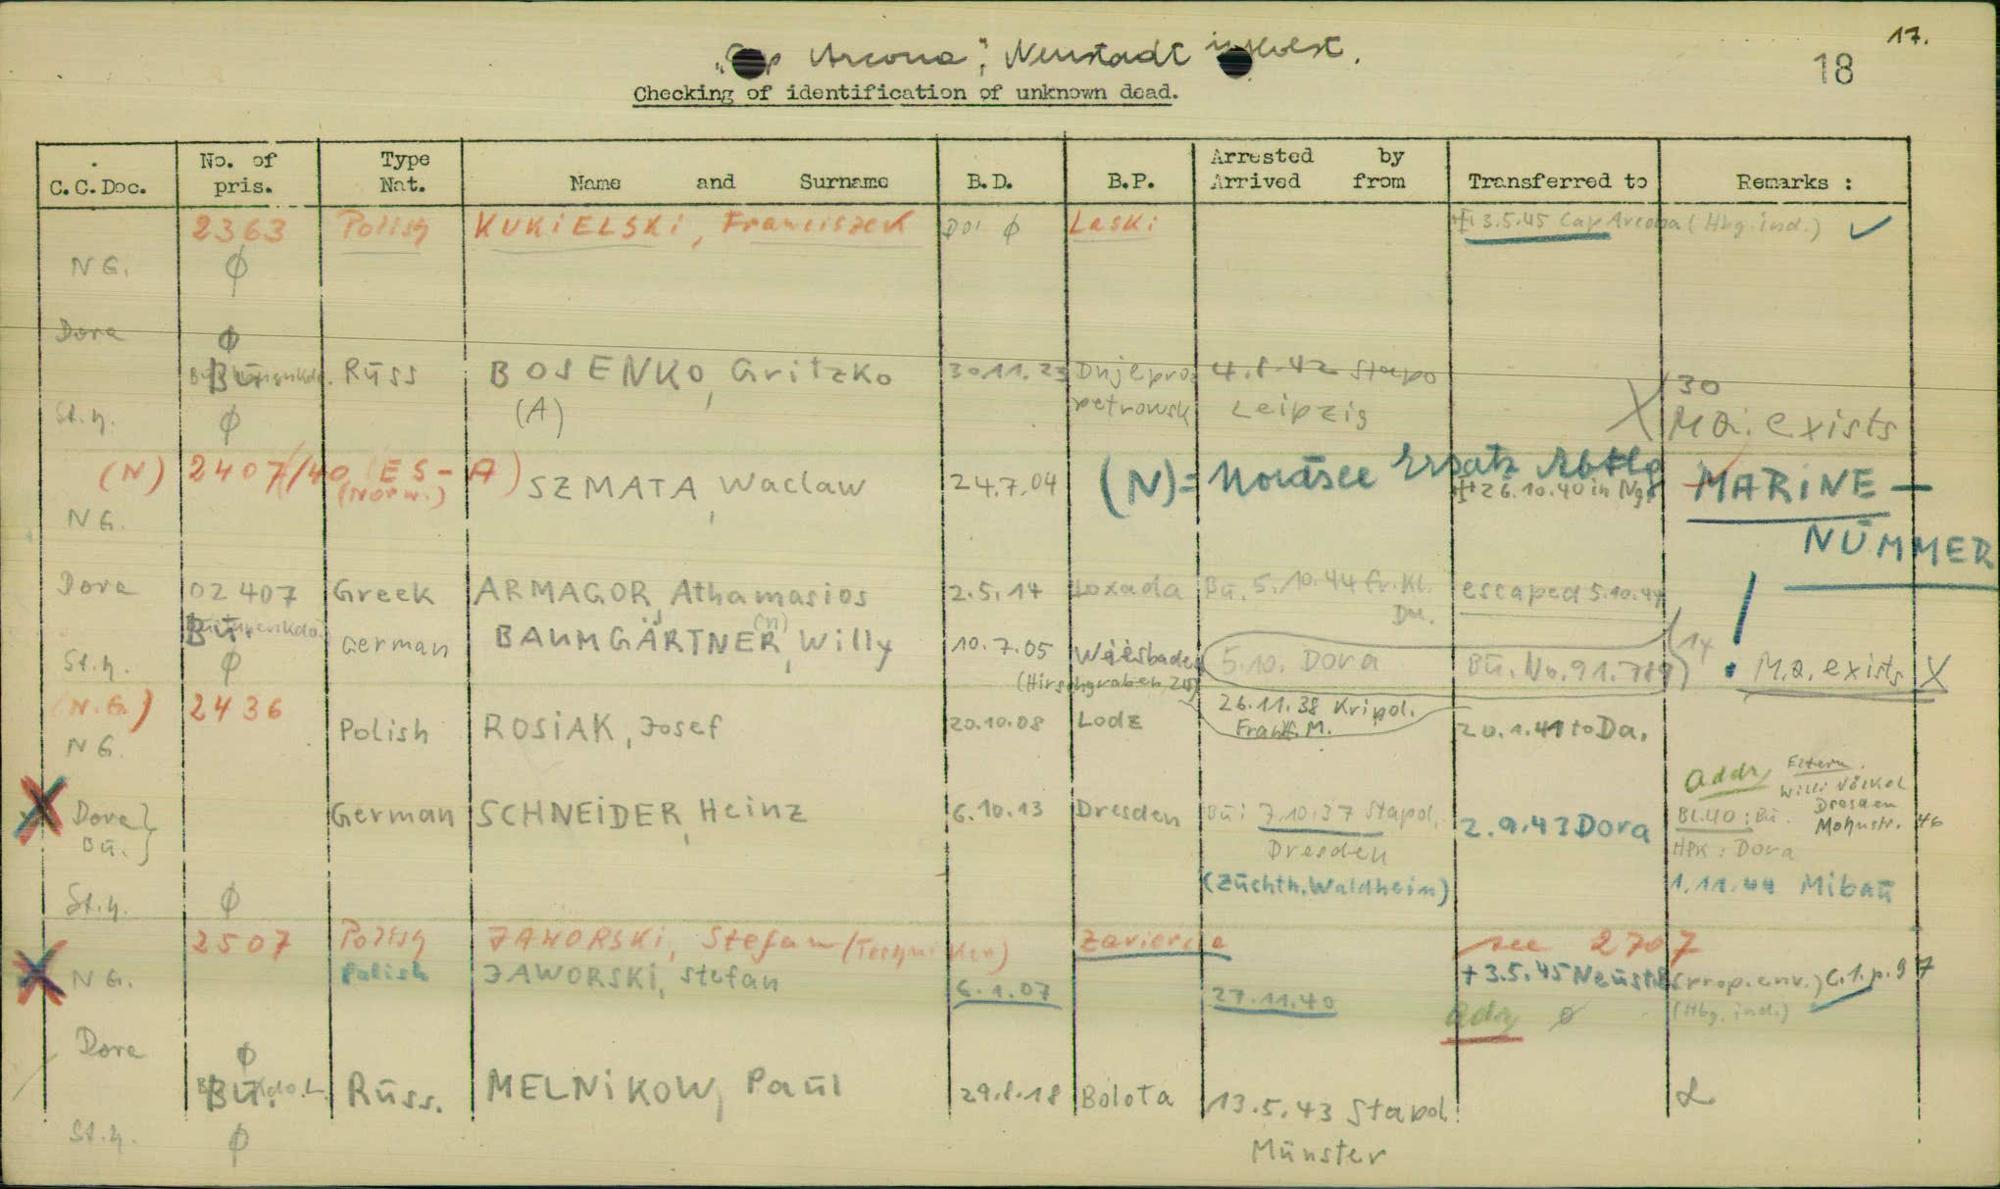 17.
"Cap Arcona", Neustadt i. Holst.
18
Checking of identification of unknown dead.
C.C.Doc. No. of pris. Type Nat. Name and Surname B.D. B.P. Arrested by Arrived from Transferred to Remarks :
2363 Polish KUKiELSKi, Franciszek ∅ Laski 3.5.45 Cap Arcona (Hbg. ind.) ✓
NG. ∅
Dora ∅
Bu. Rūss BOSENKO, Gritzko 30.11.23 Dnjepro 4.8.42 Stapo
30
(A) petrowsk Leipzig
St.h. ∅
X Ma. exists
(N) 2407/40 (ES-A)
(Norw.)
SZMATA, Waclaw 24.7.04 (N)= Nordsee Ersatz Abtlg MARiNE -
26.10.40 in Ng.
NG.
NŪMMER
Dora 02407 Greek ARMAGOR, Athamasios 2.5.14 Bū. 5.10.44 fr. Kl. escaped 5.10.44
Da.
Bū. German BAUMGÄRTNER, Willy 10.7.05 Wiesbaden 5.10. Dora Bū. No. 91.789 14
(n)
St.h. ∅ (Hirschgraben 26) ! M.a. exists X
(N.G.) 2436 26.11.38 Kripol.
Frankf. M.
Polish ROSiAK, Josef 20.10.08 Lodz 20.1.41 to Da.
NG.
Addr, Eltern.
Willi Völkel
Dresden
Mohnstr. 46
X Dora} German SCHNEiDER, Heinz 6.10.13 Dresden Bū: 7.10.37 Stapol. 2.9.43 Dora Bl.40: Bū.
Bū.} Dresden HPK: Dora
(Zūchth. Waldheim) 1.11.44 Mibaū
St.h. ∅
2507 Polish JAWORSKi, Stefan (Techniker) Zavierce see 2707
X NG. Polish JAWORSKi, Stefan 6.1.07 27.11.40 +3.5.45 Neūst. (prop.env.) C.1.p.97
Adr ∅ (Hbg. ind.)
Dora ∅
Bū. Rūss. MELNiKOW, Paūl 29.8.18 Bolota 13.5.43 Stapol.
Mūnster
St.h. ∅